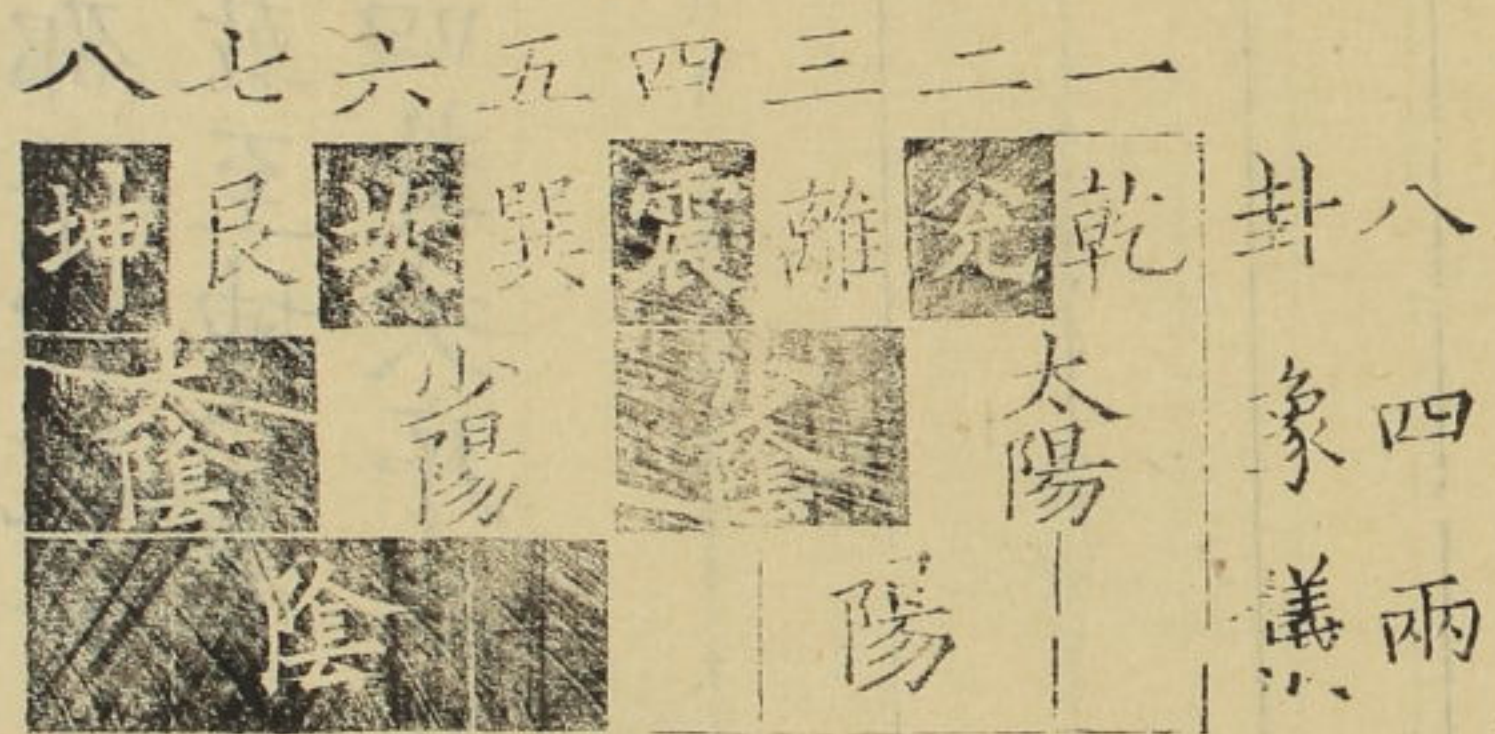 一二三四五六七八
八卦 乾 兌 離 震 巽 坎 艮 坤
四象 太陽 少陰 少陽 太陰
兩儀 陽 陰